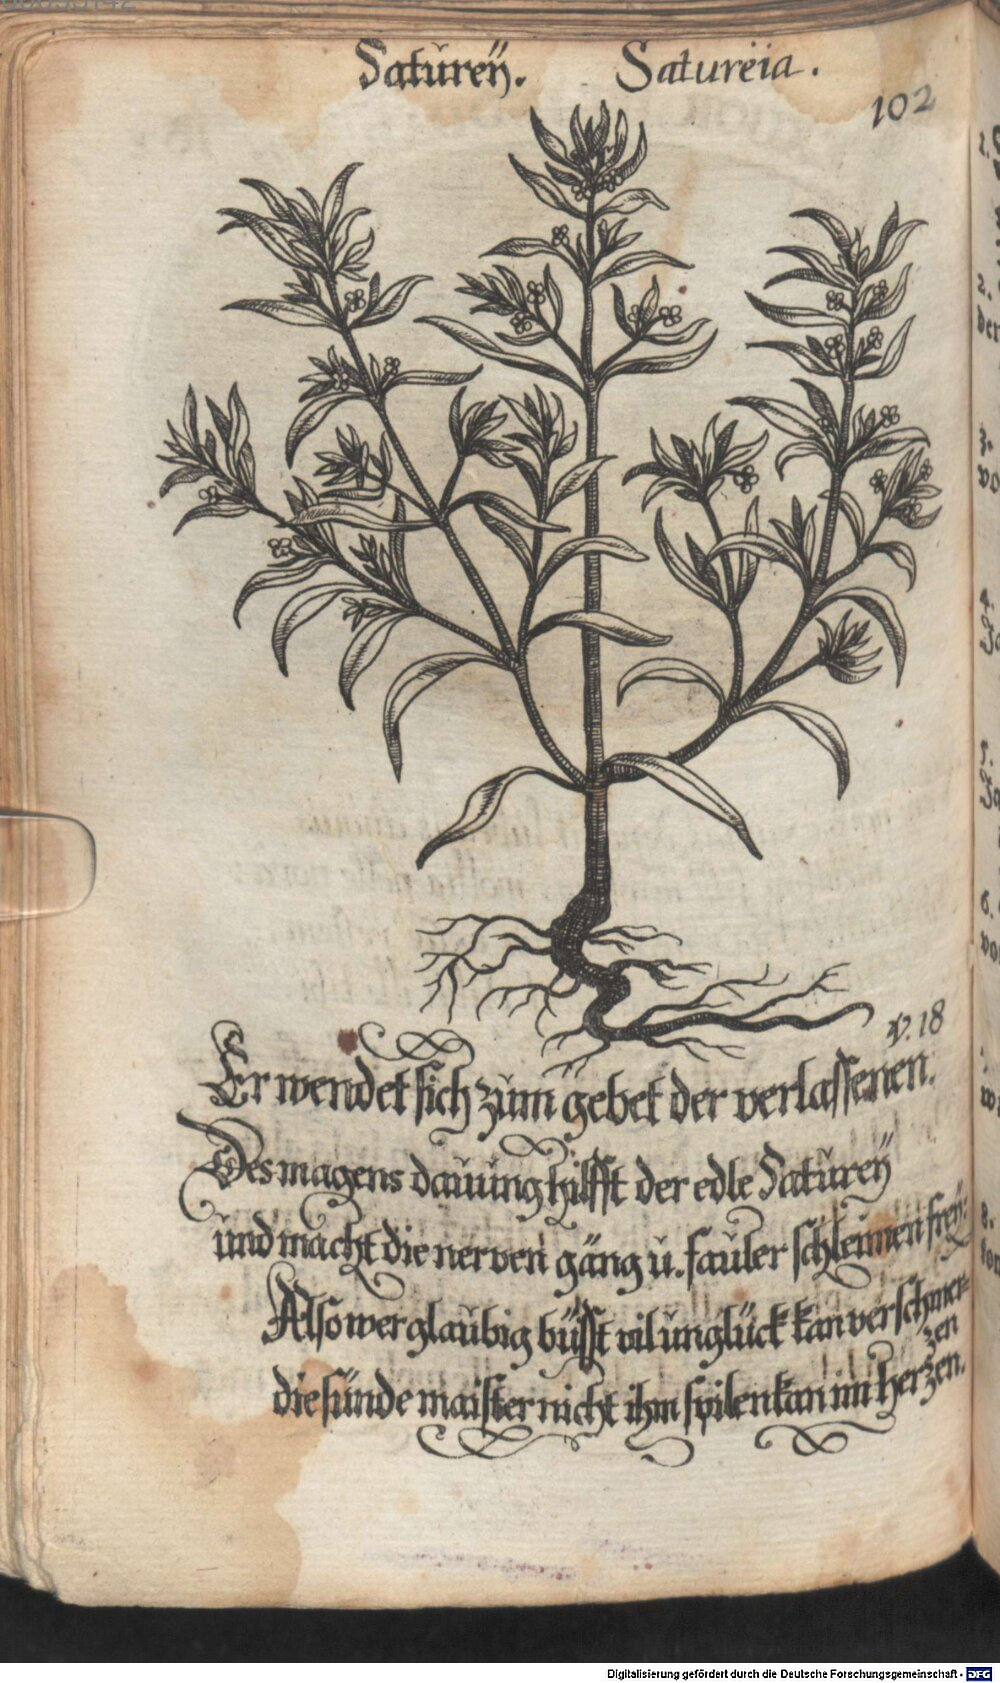 Satureÿ. Satureia.
102
v. 18
Er wendet sich zum gebet der verlassenen.
Des magens dauung hilfft der edle Satureÿ
und macht die nerven gäng u. fauler schleimen freÿ:
Also wer glaubig büsst vil unglück kan verschmer=
zen
die sünde maister nicht ihm spilen kan im herzen.
Digitalisierung gefördert durch die Deutsche Forschungsgemeinschaft - DFG